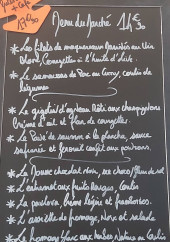 Menu du Marché 14€50
* Les filets de maquereaux marinés au Vin
blanc, Courgettes à l'huile d'olive.
* Le de Porc au Curry, Coulis de
légumes
* Le d'agneau Rôti aux champignons
Crème d'ail et flan de courgettes.
* Le Pavé de saumon à la plancha, sauce
safranée et fenouil confit aux poivrons.
* La Mousse chocolat noir,
* L' aux fruits Rouges, Coulis
* La pavlova crème légère et framboises.
* L'assiette de fromage, Noix et salade
* Le fromage blanc aux herbes Nature ou Coulis